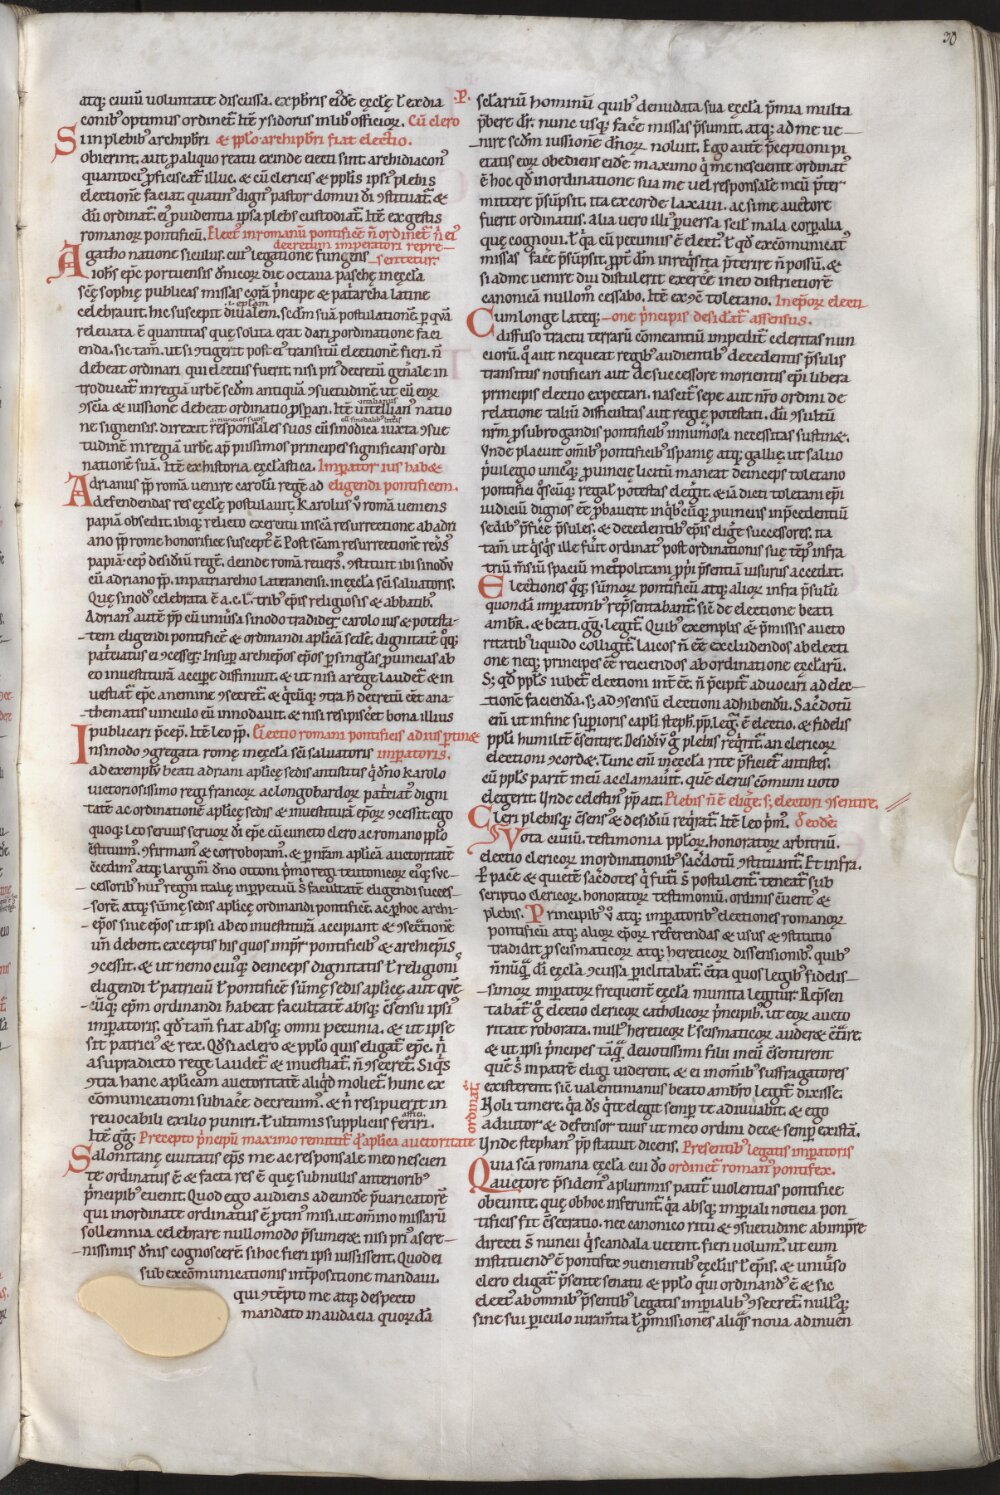 30
atq; ciuiū uoluntate discussa. ex pb̄ris eiđē ęccl̄ę ł ex dia
conib᷒ optimus ordinet᷑. Itē ysidorus in lib᷒ officioꝝ. Cū clero
Si in plebib᷒ archipb̄ri & pp̄lo archipb̄ri fiat electio.
obierint. aut ꝑ aliquo reatu exinde eiecti sint archidiacon᷒
quantoci᷒ ꝓficiscat᷑ illuc. & cū clericis & pp̄lis ipsi᷒ plebis
electionē faciat. quatin᷒ dign᷒ pastor domui dī ꝯstituat᷑. &
dū ordinat᷑. ei᷒ ꝓuidentia ipsa plebs custodiat᷑. Itē ex gestis
romanoꝝ pontificū. Elect᷒ in romanū pontificē n̄ ordinet᷑ n̄ ei᷒
decretum imperatori repre-
Agatho natione siculus. cui᷒ legatione fungens sentetur.
ioh̄s ep̄c portuensis dn̄icoꝝ die octaua paschę in ęccl̄a
sc̄ę sophię publicas missas corā p̄ncipe & pat᷑archa latine
celebrauit. hic suscepit diualem. scđm suā postulationē ꝑ quā
.i. ep̄lam
releuata ē quantitas quę solita erat dari ꝓ ordinatione faci
enda. sic tam̄. ut si ꝯtigerit post ei᷒ transitū electionē fieri. n̄
debeat ordinari. qui electus fuerit. nisi pri᷒ decretū geńale in
troducat᷑ in regiā urbē scđm antiquā ꝯsuetudinē ut cū eoꝝ
ꝯsc̄ia & iussione debeat ordinatio ꝓspari. Itē uitellian᷒ natio
uitalianus
ne signensis. direxit responsales suos cū sinodica iuxta ꝯsue
.i. nuncios suos
tudinē in regiā urbē. ap᷒ piissimos principes significans ordi
nationē suā. Itē ex historia ęccl̄astica. Imꝑator ius habet
Adrianus pp̄ romā uenire carolū regē ad eligendi pontificem.
defendendas res ęccl̄ę postulauit. Karolus v̊ romā ueniens
papiā obsedit. ibiq; relicto exercitu in sc̄a resurrectione ab adri
ano pp̄ rome honorifice suscept᷒ ē. Post sc̄am resurrectionē reuˀs᷒
papiā cep̄ desideriū regē. deinde romā reuers᷒. ꝯstituit ibi sinodū
cū adriano pp̄. in patriarchio lateranensi. in ęccl̄a sc̄i saluatoris.
Quę sinod᷒ celebrata ē. a.c.l. trib᷒ ep̄is religiosis & abbatib᷒.
Adrian᷒ autē pp̄ cū uniuˀsa sinodo tradider̄ carolo ius & potesta-
tem eligendi pontificē & ordinandi apl̄icā sedē. dignitatē q̊q;
pat᷑iciatus ei ꝯcesser̄. Insuꝑ archiep̄os ep̄os ꝑ singl̄as ꝓuincias ab
eo inuestiturā accipe diffiniuit. & ut nisi a rege laudet᷑ & in
uestiat᷑ ep̄c a nemine ꝯsecret᷑. & q̇cūq; ꝯtra h᷒ decretū eēt ana-
thematis uinculo eū innodauit. & nisi resipiscˀet bona illius
publicari p̄cep̄. Itē leo pp̄. Electio romani pontificis ad ius ꝑtinet
In sinodo ꝯgregata romę in ęccl̄a sc̄i saluatoris imꝑatoris.
ad exemplū beati adriani apl̄icę sedis antistitis q̇ dn̄o karolo
uictoriosissimo regi francoꝝ ac longobardoꝝ pat᷑iciat᷒ digni
tatē ac ordinationē apl̄icę sedis & inuestiturā ep̄oꝝ ꝯcessit. ego
quoq; leo seruus seruoꝝ dī ep̄c cū cuncto clero ac romano pp̄lo
ꝯstituim᷒. ꝯfirmam᷒ & corroboram᷒. & ꝑ nr̄am apl̄icā auctoritatē
ꝯcedim᷒ atq; largim᷒ dn̄o ottoni p̄mo regi teutonicoꝝ eiq;ꝫ suc-
cessorib᷒ hui᷒ regni italię inꝑpetuū s̄ facultatē eligendi succes-
sorē. atq; sūmę sedis apl̄icę ordinandi pontificē. ac ꝑ hoc archi-
ep̄os siue ep̄os ut ipsi ab eo inuestiturā accipiant & ꝯsecrationē
uñ debent. exceptis his quos imp̄r pontificib᷒ & archiep̄is
ꝯcessit. & ut nemo cui᷒q; deinceps dignitatis ł religioni᷒
eligendi ł patriciū ł pontificē sūmę sedis apl̄icę. aut quē-
cūq; ep̄m ordinandi habeat facultatē absq; ꝯsensu ipsi᷒
imꝑatoris. qđ tam̄ fiat absq; omni pecunia. & ut ipse
sit patrici᷒ & rex. Qđ si a clero & pp̄lo quis eligat᷑ ep̄c. n̄
a supradicto rege laudet᷑ & inuestiat᷑. n̄ ꝯsecret᷑. Siq̇s
ꝯtra hanc apl̄icam auctoritatē aliq̇d moliet᷑. hunc ex
cōmunicationi subiacˀe decreuim᷒. & n̄ resipuerit in
reuocabili exilio puniri. ł ultimis suppliciis feriri.
Itē gg̅. Precepto p̄ncipū maximo remittit᷑ qđ apl̄ica auctoritate ordinat᷑
Salonitanę ciuitatis ep̄s me ac responsale meo nescien
te ordinatus ē. & facta res ē quę sub nullis anteriorib᷒
p̄ncipib᷒ euenit. Quod ego audiens ad eundē p̄uaricatorē
qui inordinate ordinatus ē ꝓtin᷒ misi. ut om̄ino missarū
sollemnia celebrare nullomodo p̄sumeret. nisi pri᷒ a sere-
nissimis dn̄is cognoscerē. si hoc fieri ipsi iussissent. Quod ei
sub excōmunicationis int᷑positione mandaui.
qui ꝯtēpto me atq; despecto
mandato in audacia quorđā
.P. sęlariū hominū quib᷒ denudata sua ęccl̄a p̄mia multa
p̄bere dr̄. nunc usq; facˀe missas p̄sumit. atq; ad me ue-
nire scđm iussionē dn̄oꝝ noluit. Ego autē p̄ceptioni pi
etatis eoꝝ obediens eiđē maximo q̇ me nesciente ordinat᷒
ē hoc qđ in ordinatione sua me uel responsalē meū p̄ter
mittere p̄sūpsit. ita ex corde laxaui. ac si me auctore
fuerit ordinatus. Alia uero illi᷒ ꝑuersa scil᷒ mala corꝑalia
quę cognoui. ł q̇a cū pecuniis ē elect᷒. ł qđ excōmunicat᷒
missas facˀe p̄sūpsit. ꝓpt᷑ dm̄ inreq̇sita p̄terire n̄ possū. &
si ad me uenire diu distulerit exercere in eo districtionē
canonicā nullom̊ cessabo. Itē ex ꝯᷤ toletano. In ep̄oꝝ electi
Cum longe lateq; one p̄ncipis desidat᷑ assensus.
diffuso tractu terrarū cōmeantiū impedit᷑ celeritas nun
cioꝝ. q̊ aut nequeat regib᷒ audientib᷒ decedentis p̄sulis
transitus notificari aut de successore morientis ep̄i libera
principis electio expectari. nascit᷑ sepe aut nr̄o ordini de
relatione taliū difficultas aut regię potestati. dū ꝯsultū
nrm̄ ꝓ subrogandis pontificib᷒ iniuriosa necessitas sustinet.
Vnde placuit om̄ib᷒ pontificib᷒ ispanię atq; gallię ut saluo
p̄uilegio uniˀcuq; ꝓuincię licitū maneat deinceps toletano
pontifici q̊scūq; regal᷒ potestas elegˀit. & iā dicti toletani ep̄i
iudiciū dignos eē ꝓbauerit in q̇b᷒cūq; ꝓuinciis in p̄cedentiū
sedib᷒ p̄ficˀe p̄sules. & decedentib᷒ ep̄is eligˀe successores. ita
tam̄. ut q̇sq̇s ille fuˀit ordinat᷒ post ordinationis suę tēp᷒ infra
triū m̄siū spaciū met᷑politani ꝓprii p̄sentiā uisurus accedat.
Electiones q̊q; sūmoꝝ pontificū atq; alioꝝ infra p̄sulū
quondā imꝑatorib᷒ rep̄sentabant᷑. sic᷒ de electione beati
ambr̄. & beati gg̅. legit᷑. Quib᷒ exemplis & p̄missis aucto
ritatib᷒ liquido colligit᷑. laicos n̄ eē excludendos ab electi
one neq; principes eē reiciendos ab ordinatione ęccl̄arū.
S; qđ pp̄ls iubet᷑ electioni int᷑eē. n̄ p̄cipit᷑ aduocari ad elec-
tionē faciendā. s; ad ꝯsensū electioni adhibendū. Sacˀdotū
enī ut in fine supioris capl̄i steph̄. pp̄. leg᷑. ē electio. & fidelis
pp̄li humilit᷑ ꝯsentire. Desidiū g̊ plebis req̇rit᷑. an clericoꝝ
electioni ꝯcordet. Tunc enī in ęccl̄a rite p̄ficiet᷑ antistes.
cū pp̄ls parit᷑ in eū acclamauit. quē clerus cōmuni uoto
elegerit. Vnde celestin᷒ pp̄ ait. Plebis n̄ ē eligˀe. s; electori ꝯsentire.
Cleri plebisq; ꝯsens᷒ & desidiū req̇rat᷑. Itē leo p̄m᷒. De eođē.
Vota ciuiū. testimonia pp̄loꝝ. honoratoꝝ arbitriū.
electio clericoꝝ in ordinationib᷒ sacˀdotū ꝯstituant᷑. Et infra.
Ꝑ pacē & quietē sacˀdotes q̇ fut᷑i s̄ postulent᷑. teneat᷑ sub
scriptio clericoꝝ. honoratoꝝ testimoniū. ordinis ꝯsensus &
plebis. Principib᷒ v̊ atq; imꝑatorib᷒ electiones romanoꝝ
pontificū atq; alioꝝ ep̄oꝝ referendas & usus & ꝯstitutio
tradidit ꝓ scismaticoꝝ atq; hereticoꝝ dissensionib᷒. quib᷒
n̄nūq̄. dī ęccl̄a ꝯcussa ꝑiclitabat᷑. ꝯtra quos legib᷒ fidelis-
simoꝝ imꝑatoꝝ frequent᷑ ęccl̄a munita legit᷑. Rep̄sen
tabat᷑ g̊ electio clericoꝝ catholicoꝝ p̄ncipib᷒. ut eoꝝ aucto
ritate roborata. null᷒ hereticoꝝ ł scismaticoꝝ auderet ꝯt᷑ire.
& ut ipsi p̄ncipes tāq̄. deuotissimi filii in eū ꝯsentirent
quē s̄ in patrē eligi uiderent. & ei in om̄ib᷒ suffragatores
existerent. sic᷒ ualentinianus beato ambr̄o legit᷑ dixisse.
Noli timere. q̇a ds̄ q̇ te elegit semꝑ te adiuuabit. & ego
adiutor & defensor tuus ut meo ordini decet semꝑ existā.
Vnde stephan᷒ pp̄ statuit dicens. Presentib᷒ legatis imꝑatoris
Quia sc̄a romana ęccl̄a cui d̄o ordinet᷑ roman᷒ pontifex.
auctore p̄sidem᷒ a plurimis patit᷑ uiolentias pontifice
obeunte. que ob hoc inferunt᷑. q̇a absq; imꝑiali noticia pon
tificis fit ꝯsecratio. nec canonico ritu & ꝯsuetudine ab imꝑre
directi s̄ nuncii q̇ scandala uetent. fieri uolum᷒. ut cum
instituend᷒ ē pontifex ꝯuenientib᷒ ęccl̄iis ł ep̄is. & uniuˀso
clero eligat᷑ p̄sente senatu & pp̄lo qui ordinand᷒ ē & sic
elect᷒ ab omnib᷒ p̄sentib᷒ legatis imꝑialib᷒ ꝯsecret᷑. null᷒q;
sine sui ꝑiculo iuram̄ta ł ꝓmissiones aliq̄s noua adinuen